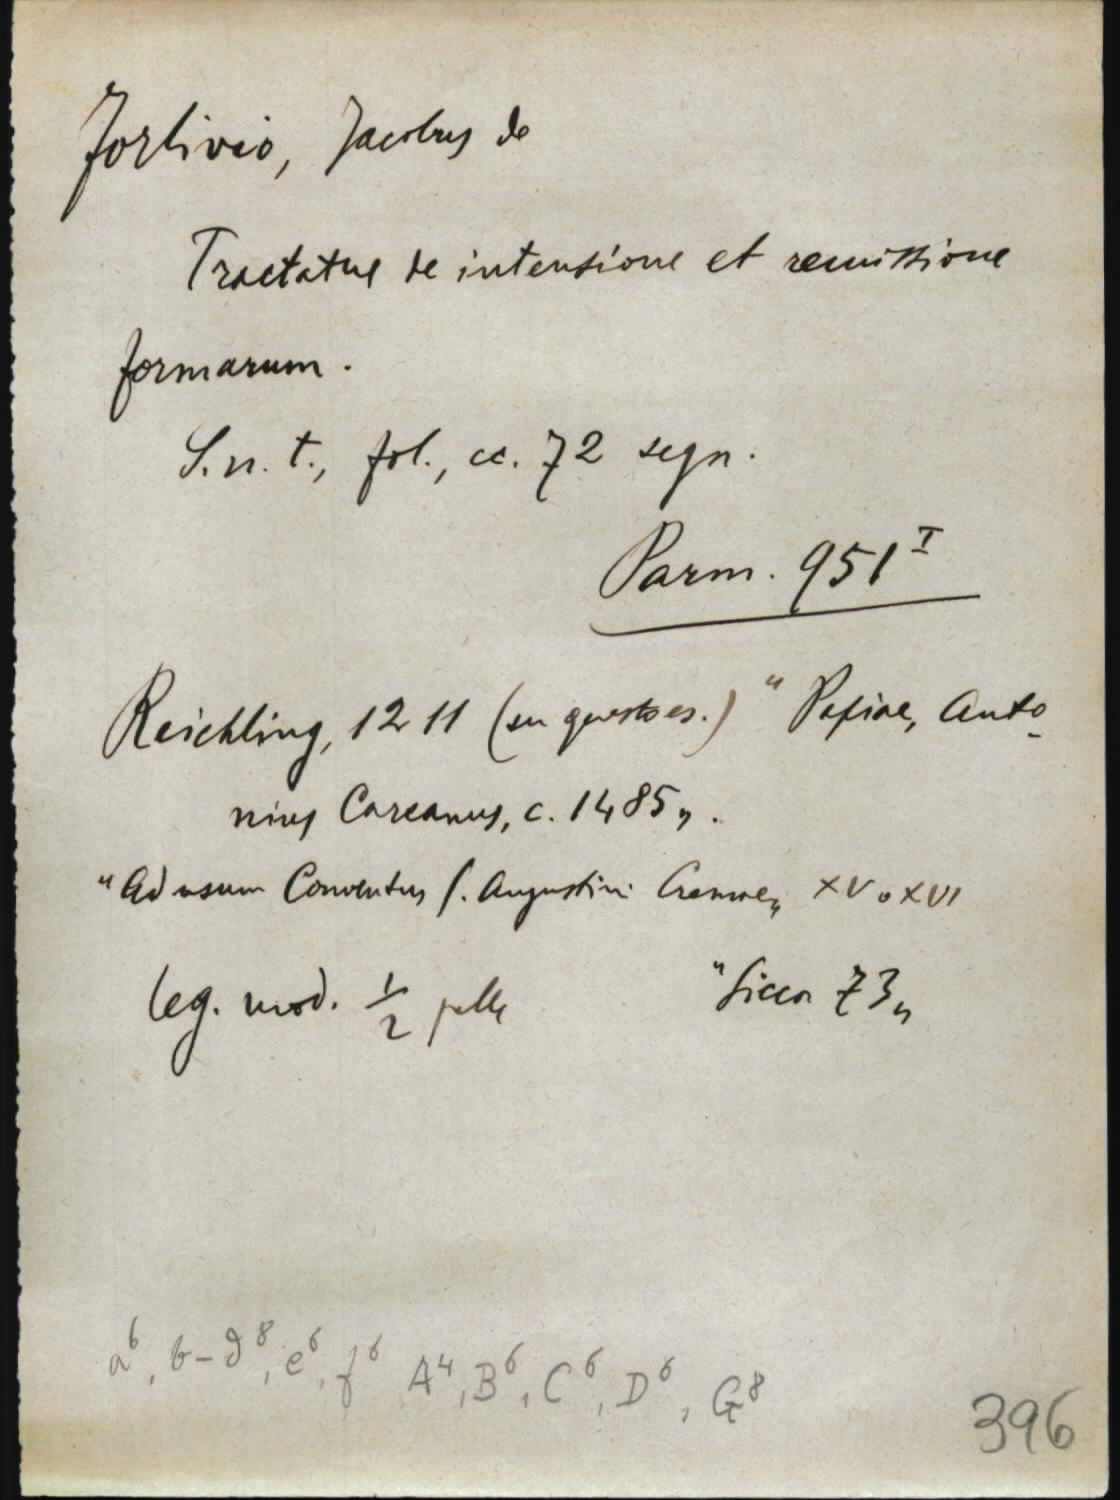 Forlivio, Jacobus de
Tractatus de intensione et remissione
formarum.
S. n. t., fol., cc. 72 segn.
Parm. 951 I
Reichling, 1211 (su questo es.) "Papiae, Anto-
nius Carcanus, c. 1485„.
"Ad usum Conventus S. Augustini Cremae„ XV o XVI
leg. mod. 1/2 pelle "Sicca 73„
a⁶, b-d⁸, e⁶, f⁶ A⁴, B⁶, C⁶, D⁶, G⁸
396